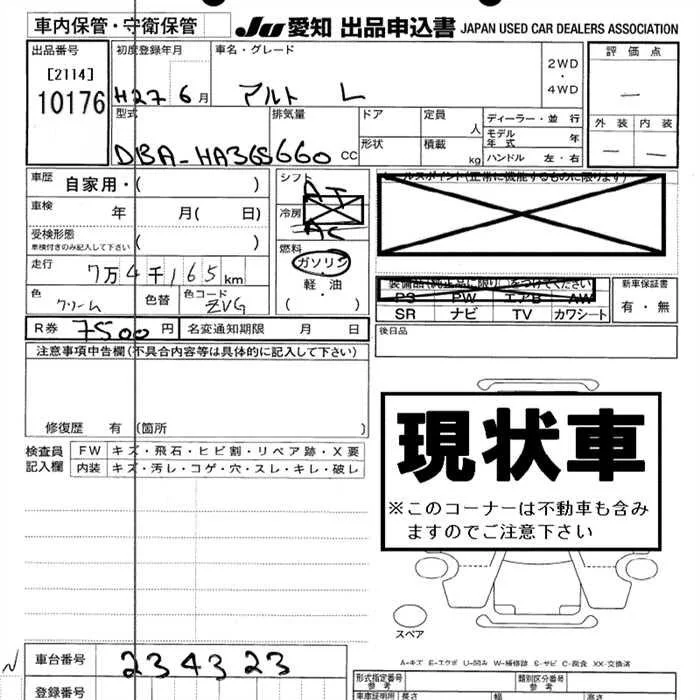 車内保管・守衛保管 JU 愛知 出品申込書 JAPAN USED CAR DEALERS ASSOCIATION
出品番号 初度登録年月 車名・グレード 2WD ・ 4WD 評価点
[2114]
10176 H27 6月 アルト L —
型式 排気量 ドア 定員 人 ディーラー・並行 外装 内装
モデル年式 年
DBA-HA36S 660 cc 形状 積載 kg ハンドル 左・右 — —
車歴 自家用・( ) シフト AT
車検 年 月( 日) 冷房 AC
受検形態 ( )
車検付きのみ記入して下さい
燃料 ガソリン
走行 7万4千165km 軽・油
色 クリーム 色替 色コード ZVG ( )
装備品(純正品に限り○をつけてください) 新車保証書
PS PW エアB AW 有・無
SR ナビ TV カワシート
R券 7500円 名変通知期限 月 日 後日品
注意事項申告欄(不具合内容等は具体的に記入して下さい)
修復歴 有 (箇所 )
現状車
※このコーナーは不動車も含み
ますのでご注意下さい
検査員 FW キズ・飛石・ヒビ割・リペア跡・X要
記入欄 内装 キズ・汚レ・コゲ・穴・スレ・キレ・破レ
スペア
A-キズ E-エクボ U-凹み W-補修跡 S-サビ C-腐食 XX-交換済
車台番号 234323 形式指定番号 参考 類別区分番号 参考
登録番号 車庫証明用 長さ 幅 高さ